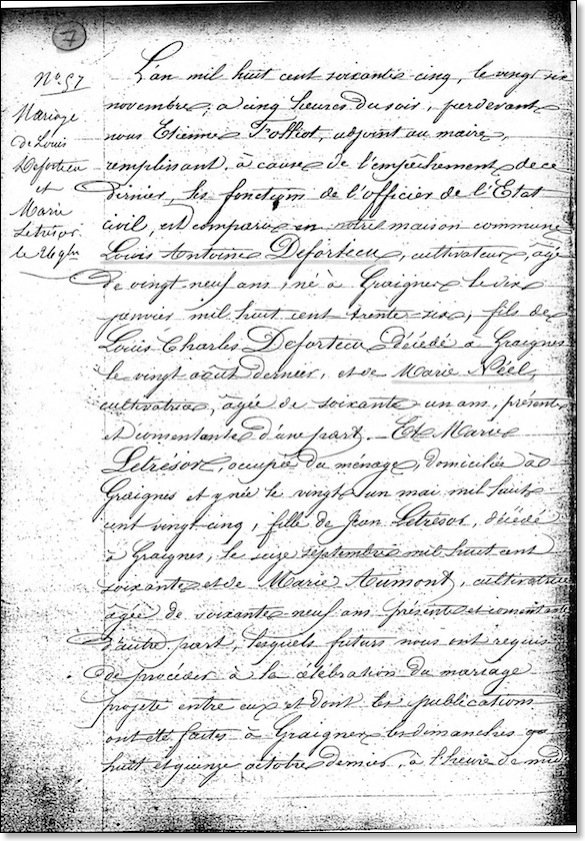 7
N° 57
Mariage
de Louis
Deforticu
et
Marie
Letrésor
le 26 9bre
L'an mil huit cent soixante cinq, le vingt six
novembre, à cinq heures du soir, par devant
nous Etienne Folliot, adjoint au maire,
remplissant, à cause de l'empêchement de ce
dernier, les fonctions de l'officier de l'Etat
civil, est comparu en notre maison commune
Louis Antoine Deforticu, cultivateur, âgé
de vingt neuf ans, né à Graignes le dix
janvier mil huit cent trente-six, fils de
Louis Charles Deforticu décédé à Graignes
le vingt août dernier, et de Marie Néel,
cultivatrice, âgée de soixante un ans, présente
et consentante d'une part. Et Marie
Letrésor, occupée du ménage, domiciliée à
Graignes et y née le vingt un mai mil huit
cent vingt cinq, fille de Jean Letrésor, décédé
à Graignes, le seize septembre mil huit cent
soixante et de Marie Aumont, cultivatrice
âgée de soixante neuf ans présente et consentante
d'autre part, lesquels futurs nous ont requis
de procéder à la célébration du mariage
projeté entre eux et dont les publications
ont été faites à Graignes les dimanches
huit et quinze octobre dernier, à l'heure de midi